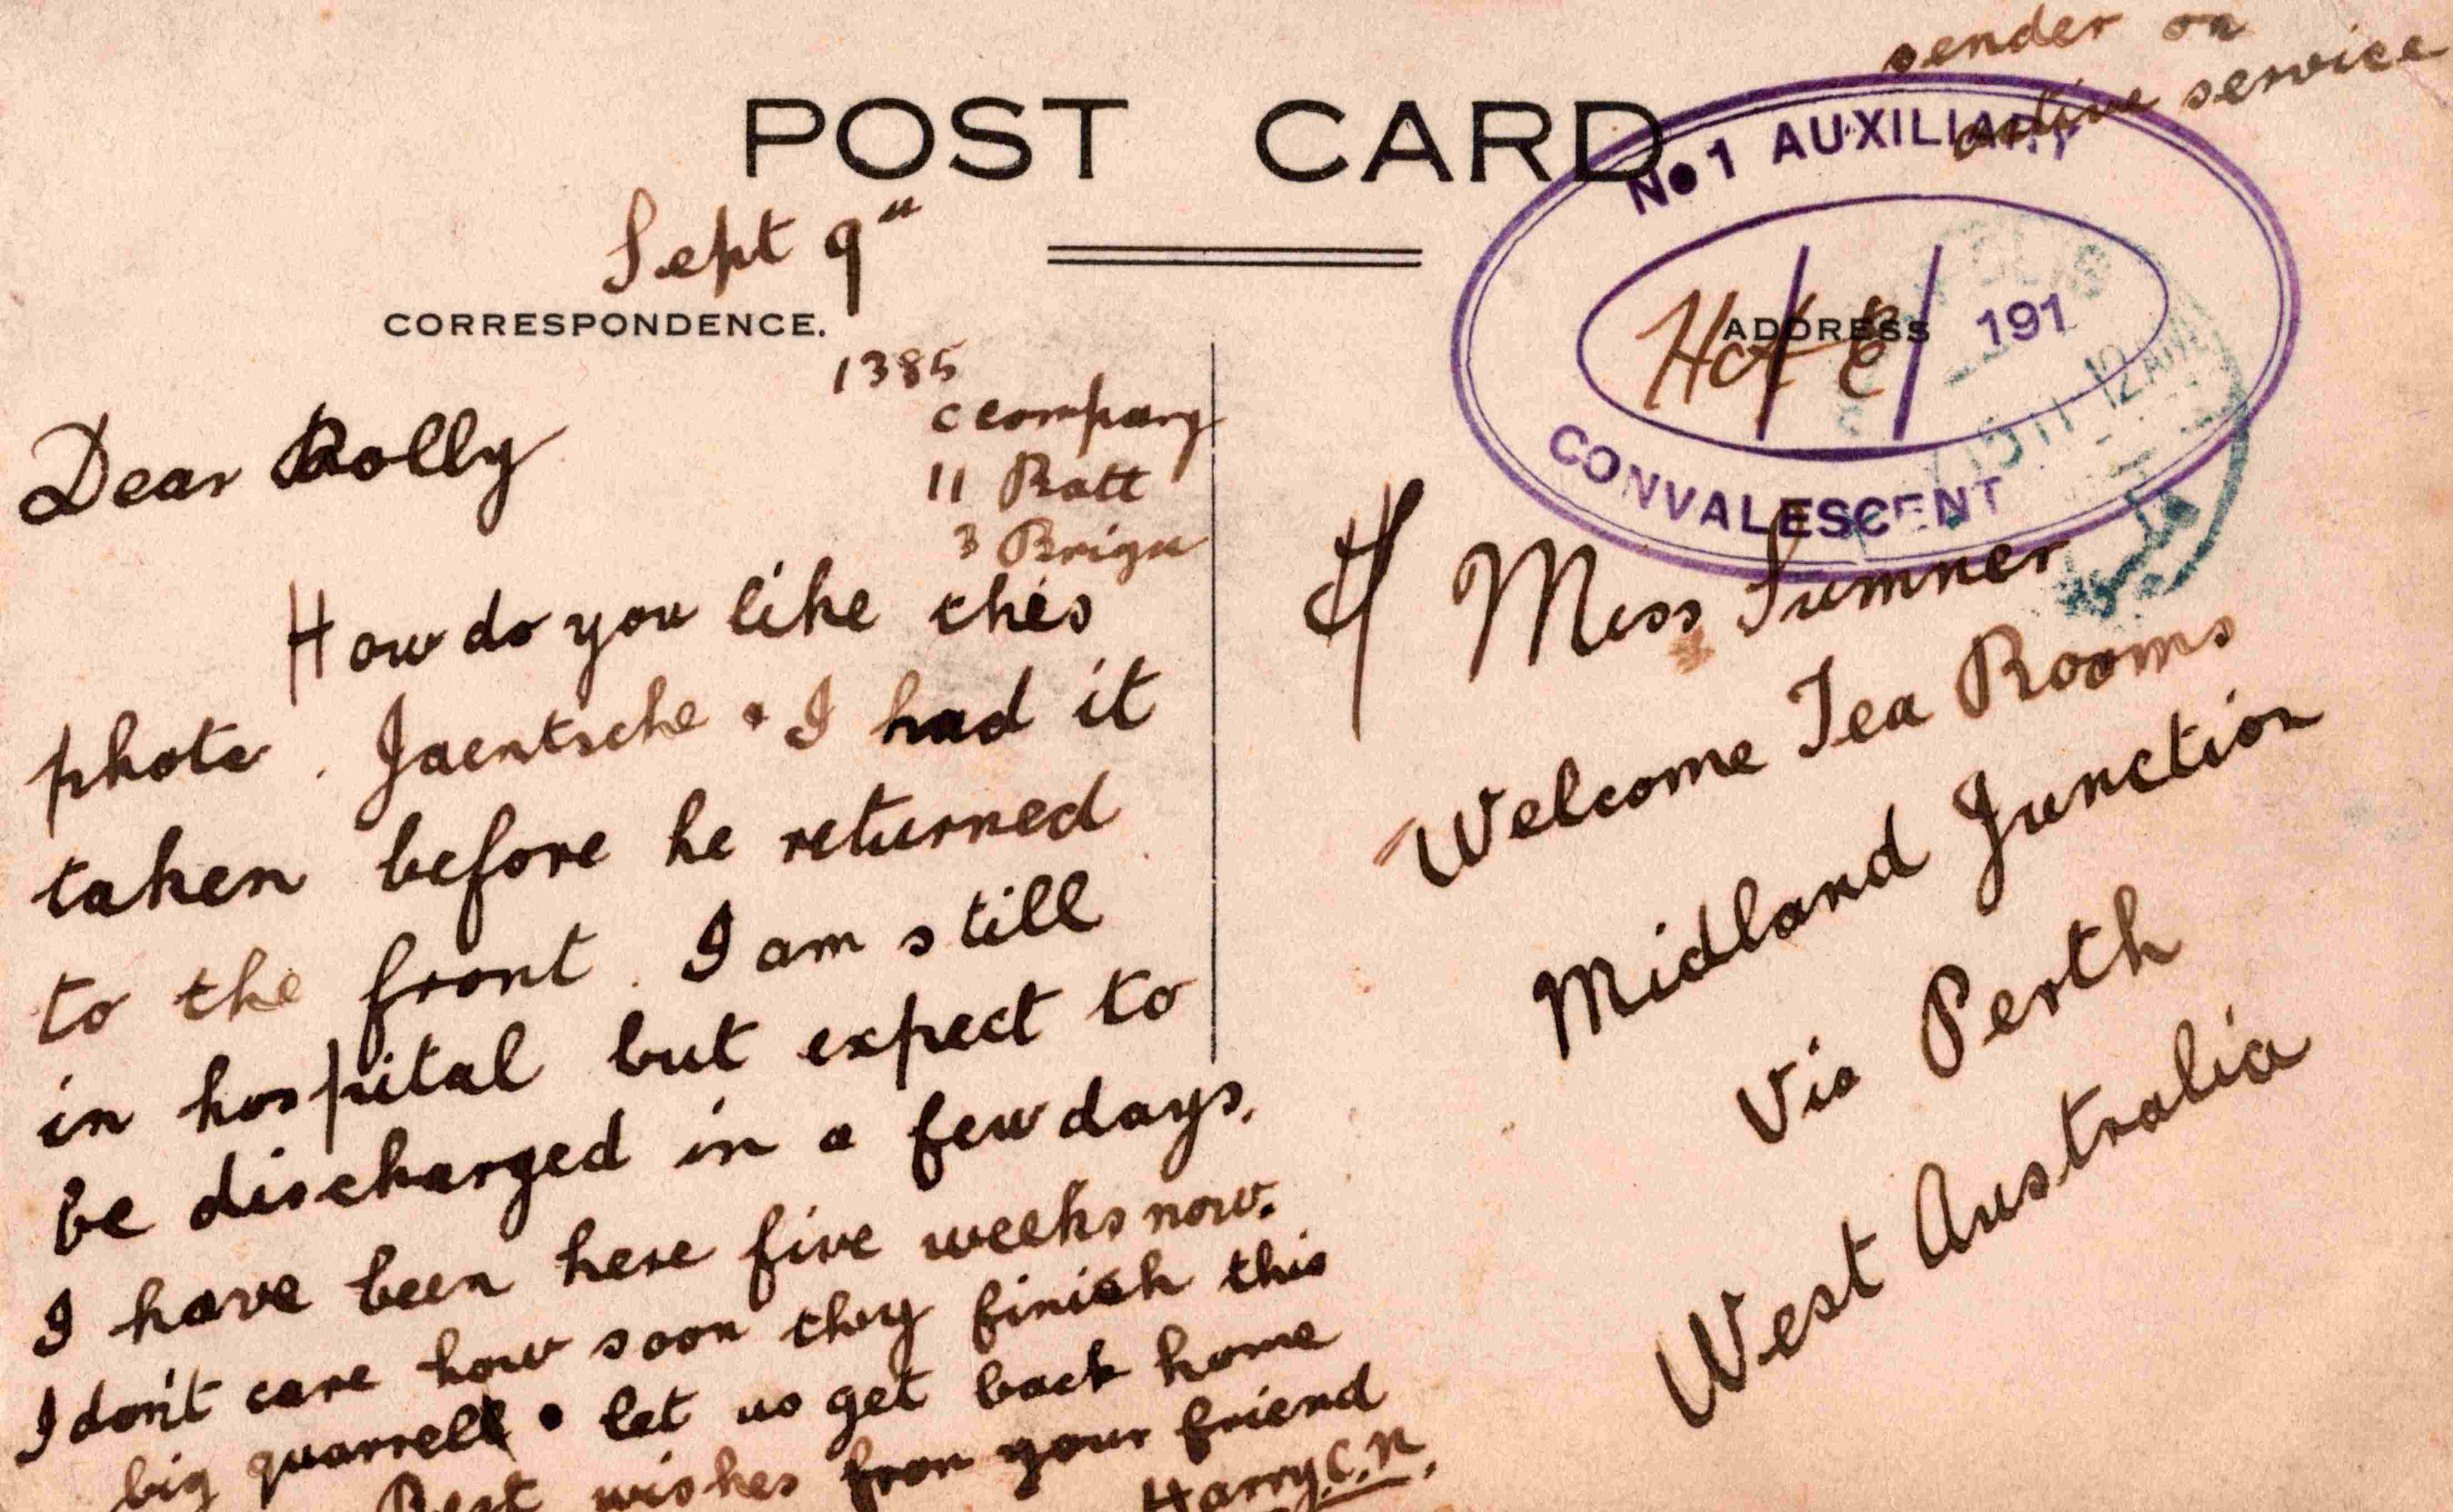 sender on
active service
POST CARD
No 1 AUXILIARY
191
CONVALESCENT
Sept 9"
CORRESPONDENCE.
ADDRESS
1385
c company
11 Batt
3 Brigu
Dear Rolly
How do you like this
photo. Jaentsche & I had it
taken before he returned
to the front. I am still
in hospital but expect to
be discharged in a few days.
I have been here five weeks now.
I don't care how soon they finish this
big quarrell. let us get back home
Best wishes from your friend
Harry C.N.
Miss Sumner
Welcome Tea Rooms
Midland Junction
Via Perth
West Australia